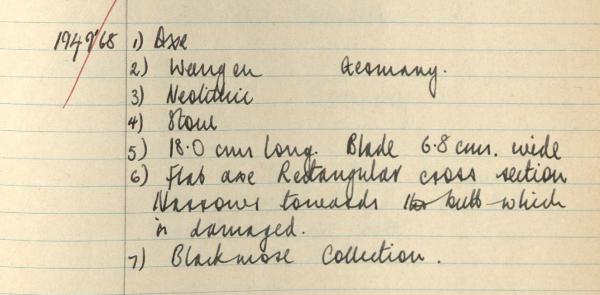 1949/68 1) Axe
2) Wangen Germany.
3) Neolithic
4) Stone
5) 18.0 cms long. Blade 6.8 cms. wide
6) Flat axe Rectangular cross section
Narrows towards butt which
is damaged.
7) Blackmore Collection.